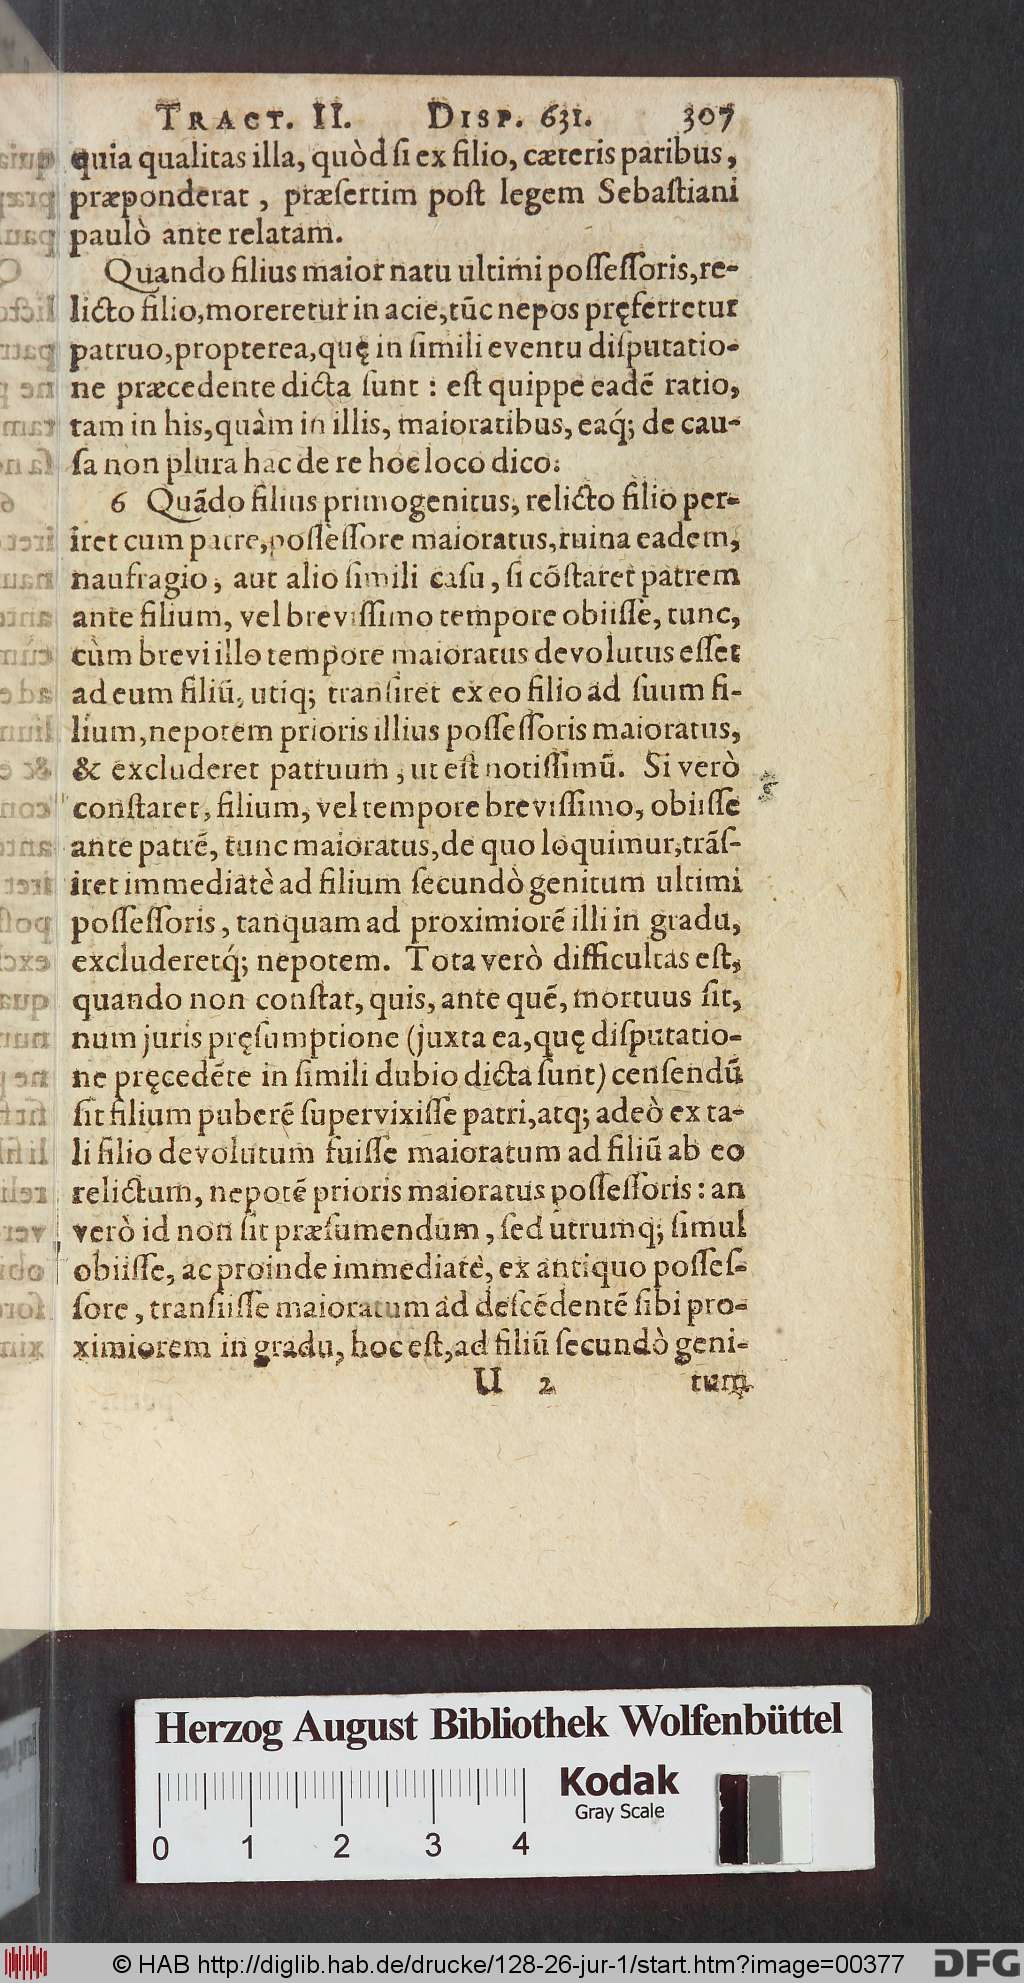 TRACT. II. DISP. 631. 307
quia qualitas illa, quòd ſi ex filio, cæteris paribus,
præponderat, præſertim poſt legem Sebaſtiani
paulò ante relatam.
Quando filius maior natu ultimi poſſeſſoris, re-
licto filio, moreretur in acie, tūc nepos pręferretur
patruo, propterea, quę in ſimili eventu diſputatio-
ne præcedente dicta ſunt : eſt quippe eadē ratio,
tam in his, quàm in illis, maioratibus, eaq́; de cau-
ſa non plura hac de re hoc loco dico.
6 Quādo filius primogenitus, relicto filio per-
iret cum patre, poſſeſſore maioratus, ruina eadem,
naufragio, aut alio ſimili caſu, ſi cōſtaret patrem
ante filium, vel breviſſimo tempore obiiſſe, tunc,
cùm brevi illo tempore maioratus devolutus eſſet
ad eum filiū, utiq; tranſiret ex eo filio ad ſuum fi-
lium, nepotem prioris illius poſſeſſoris maioratus,
& excluderet patruum, ut eſt notiſſimū. Si verò
conſtaret, filium, vel tempore breviſſimo, obiiſſe
ante patrē, tunc maioratus, de quo loquimur, trāſ-
iret immediatè ad filium ſecundò genitum ultimi
poſſeſſoris, tanquam ad proximiorē illi in gradu,
excluderetq́; nepotem. Tota verò difficultas eſt,
quando non conſtat, quis, ante quē, mortuus ſit,
num juris pręſumptione (juxta ea, quę diſputatio-
ne pręcedēte in ſimili dubio dicta ſunt) cenſendū
ſit filium puberē ſupervixiſſe patri, atq; adeò ex ta-
li filio devolutum fuiſſe maioratum ad filiū ab eo
relictum, nepotē prioris maioratus poſſeſſoris : an
verò id non ſit præſumendum, ſed utrumq; ſimul
obiiſſe, ac proinde immediatè, ex antiquo poſſeſ-
ſore, tranſiiſſe maioratum ad deſcēdentē ſibi pro-
ximiorem in gradu, hoc eſt, ad filiū ſecundò geni-
U 2 tum
Herzog August Bibliothek Wolfenbüttel
Kodak
Gray Scale
0 1 2 3 4
© HAB http://diglib.hab.de/drucke/128-26-jur-1/start.htm?image=00377
DFG